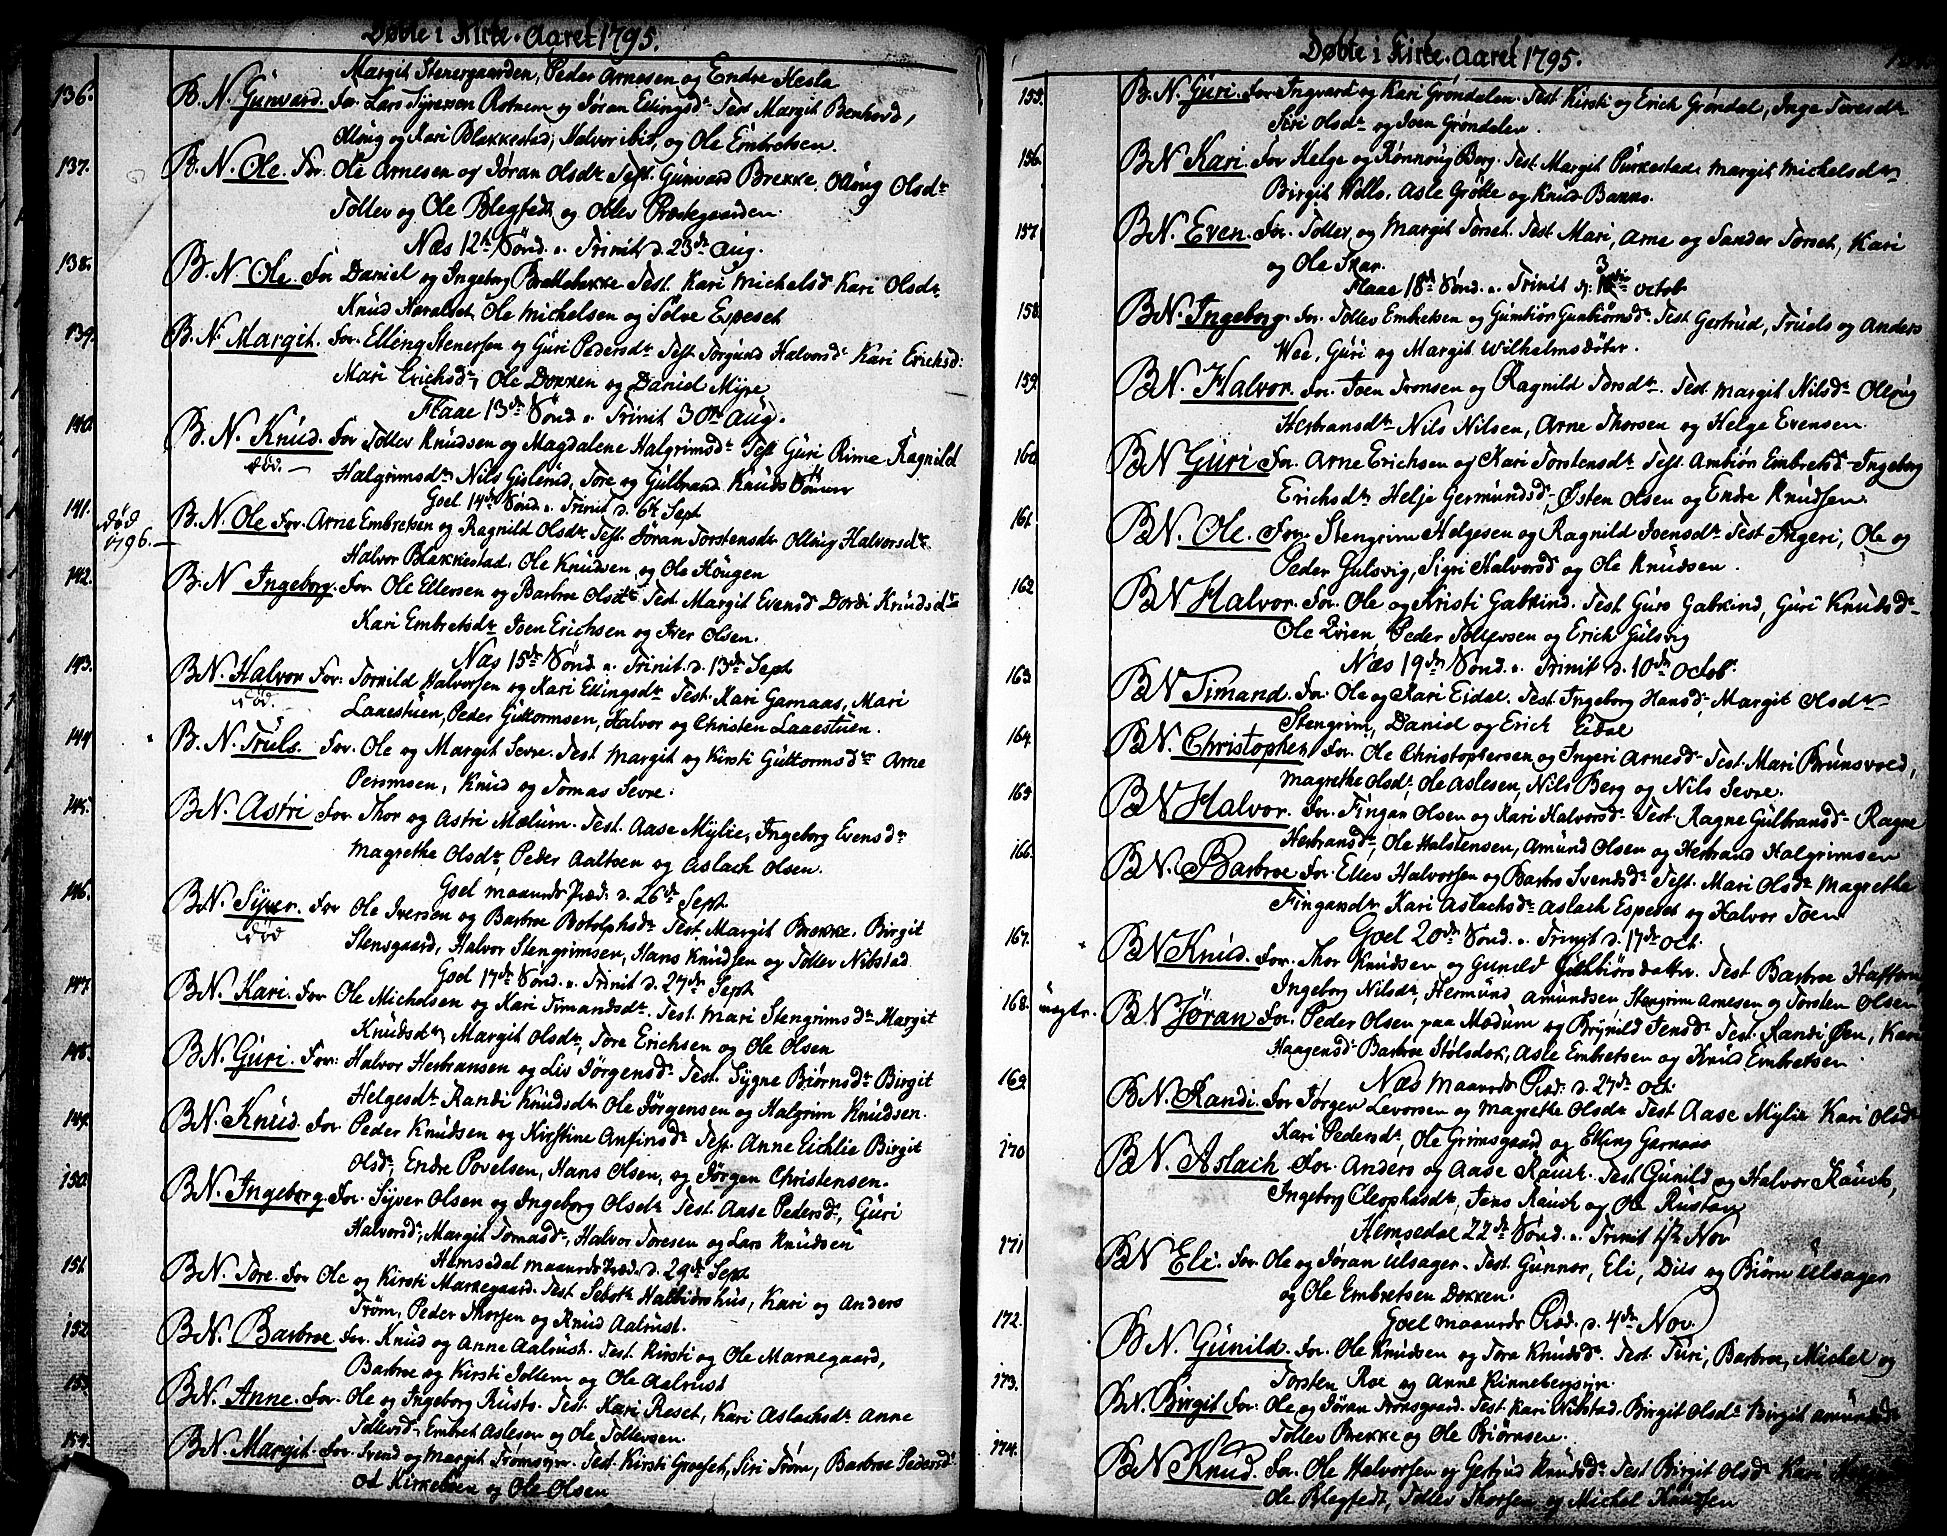 Døbte i Kirke. Aaret 1795.
Margit Stenergaarden, Peder Arnesen og Endre Hesla
136. B. N. Gunvard. For. Lars Syversen Rotnem og Jøran Ellingsdr. Test Margit Benhovd,
Ollong og Kari Blakkestad, Halvor ibid, og Ole Embretsen.
137. B. N. Ole. For. Ole Arnesen og Jøran Olsdr. Test. Gunvard Brekke, Olloug Olsdr
Tollev og Ole Blegfedt og Ollev Præstegaarden.
Næs 12te Sønd. a. Trinit d. 23de Aug.
138. B. N. Ole. For Daniel og Ingeborg Brattebekke Test. Kari Michelsd Kari Olsdr
Knud Ole Michelsen og Solve Espeset
139. B. N. Margit. For. Elling Stenersen og Guri Pedersdr Test Torgund Halvorsdr Kari Erichsd:
Mari Erichsdr, Ole Dokken og Daniel Myre
Flaae 13de Sønd a. Trinit 30te Aug.
140. B. N. Knud. For Tollev Knudsen og Magdalene Halgrimsdr Test Guri Rime Ragnild
død.
Halgrimsdr Nils Gislerud, Tore og Gulbrand Knuds Sønner
Goel 14de Sønd a. Trinit d. 6te Sept
141. død 1796. B. N. Ole For. Arne Embretsen og Ragnild Olsdr Test. Jøran Torstensdr Olloug Halvorsdr
Halvor Blakkestad. Ole Knudsen og Ole Hougen
142. B. N. Ingeborg. For. Ole Ellersen og Barbroe Olsdr Test. Margit Evensd Dordi Knudsdr
Kari Embretsdr Joen Erichsen og Iver Olsen.
Næs 15de Sønd. a. Trinit d. 13de Sept
143. B N. Halvor For: Tornild Halvorsen og Kari Ellingsdr Test. Kari Garnaas, Mari
død.
Laaestuen, Peder Guttormsen, Halvor og Christen Laaestuen.
144 B. N. Truls. For. Ole og Margit Sevre. Test Margit og Kirsti Guttormsdr Arne
Knud og Tomas Sevre.
145. B N. Astri For. Thor og Astri Mælum. Test. Aase Mylie, Ingeborg Evensdr
Magrethe Olsdr, Peder Aaltsen og Aslach Olsen.
Goel Maaneds Præd. d. 26de Sept
146. B N. Syver. For Ole Iversen og Barbroe Botolphsdr Test. Margit Brekke. Birgit
død
Stensgaard, Halvor Stengrimsen, Hans Knudsen og Tollev Nibstad
Goel 17de Sønd. a. Trinit d. 27de Sept
147. B N. Kari. For Ole Michelsen og Kari Timandsdr. Test. Mari Stengrimsdr Margit
Knudsdr, Margit Olsdr, Tore Erichsen og Ole Olsen
148. B N. Guri. For: Halvor Herbransen og Liv Jørgensdr Test. Sygne Biørnsdr Birgit
Helgesdr Randi Knudsdr Ole Jørgensen og Halgrim Knudsen.
149. B N. Knud For Peder Knudsen og Kirstine Anfinsdr Test. Anne Eichlie Birgit
Olsdr, Endre Povelsen, Hans Olsen, og Jørgen Christensen.
150. B N. Ingeborg. For. Syver Olsen og Ingeborg Olsdr Test. Aase Pedersdr, Guri
Halvorsdr, Margit Tomasdr, Halvor Toresen og Lars Knudsen
Hemsedal Maaneds Præd. d. 29de Sept
151. B N. Tore. For Ole og Kirsti Markegaard. Test Halbiørshus, Kari og Anders
Trøm, Peder Thorsen og Knud Aalrust.
152 B N. Barbroe For. Knud og Anne Aalrust. Test. Kirsti og Ole Markegaard,
Barbroe og Kirsti Jollem og Ole Aalrust
153. B N. Anne. For. Ole og Ingeborg Rusto. Test. Kari Reset, Kari Aslachsdr Anne
Tollevsdr, Embret Aslesen og Ole Tollevsen.
154. B N. Margit. For. Svend og Margit Trømsyre. Test. Kirsti Groeset, Siri Trøm, Barbroe Pedersdr
og Ole Olsen
Døbte i Kirke. Aaret 1795.
155. B. N. Guri. For Ingvard og Kari Grøndalen. Test Kirsti og Erich Grøndal, Inge Toresdr
Siri Olsdr og Joen Grøndalen.
156. B N Kari For Helge og Rønnoug Berg. Test. Margit Purkestad. Margit Michelsdr
Birgit Wollo, Asle Grøtte og Knud
157 B N. Even For. Tollev og Margit Torset. Test Mari, Arne og Sander Torset, Kari
og Ole Skar.
Flaae 18de Sønd. a. Trinit d. 3die Octob
158. B N. Ingeborg. For. Tollev Embretsen og Gunbiør Gunbiørnsdr Test Gertrud, Truels og Anders
Wee, Guri og Margit Wilhelmsdøter.
159. B N. Halvor. For. Joen Tronsen og Ragnild Torsdr. Test Margit Nilsdr Olloug
Herbransdr Nils Nilsen, Arne Thorsen og Helge Evensen.
160 B N Guri For. Arne Erichsen og Kari Torstensdr Test. Ambiør Embretsd Ingeborg
Erichsdr Helje Germundsd, Østen Olsen og Endre Knudsen
161. B N. Ole. For. Stengrim Helgesen og Ragnild Joensdr Test Ingeri, Ole og
Peder Gulsvig, Sigri Halvorsd og Ole Knudsen.
162 B N Halvor. For. Ole og Kristi Gabkind. Test Guro Gabkind, Guri Knudsdr
Ole Peder Tollevsen og Erich Gulsvig
Næs 19de Sønd a. Trinit d. 10de Octob.
163 B N Timand For. Ole og Kari Eidal. Test Ingeborg Hansd, Margit Olsdr
Stengrim, Daniel og Erich Eidal
164. B N. Christopher For. Ole Christophersen og Ingeri Arnesdr Test. Mari Brunsvoed,
Magrethe Olsdr, Ole Aslesen, Nils Berg og Nils Sevre.
165 B N Halvor. For. Fingar Olsen og Kari Halvorsdr. Test. Ragne Gulbransdr Ragne
Herbransdr, Ole Halstensen, Amund Olsen og Herbrand Halgrimsen
166. B N. Barbroe For. Ellev Halvorsen og Barbro Svendsdr. Test. Mari Olsdr Magrethe
Fingarsdr Kari Aslachsdr Aslach Espeset og Halvor Toen
Goel 20de Sønd. a. Trinit d. 17de Oct.
167. B N Knud. For. Thor Knudsen og Gunild Gunbiørsdatter. Test Barbroe
Ingeborg Nilsdr, Hermund Amundsen Stengrim Arnesen og Torsten Olsen
168. uægte. B N Jøran For. Peder Olsen paa Modum og Brynild Jensdr Test. Randi Øen, Kari
Haagensd Barbroe Asle Embretsen og Knud Embretsen.
Næs Maaneds Præd. d. 27de Oct.
169. B N. Randi. For Jørgen Levorsen og Magrethe Olsdr Test Aase Mylie Kari Olsdr
Kari Pedersdr, Ole Grimsgaard og Elling Garnaas
170 B N. Aslach For. Anders og Aase Rauch. Test Gunild og Halvor Rauch,
Ingeborg Cleophasdr, Jens Rauch og Ole Rustan
Hemsedal 22de Sønd. a. Trinit 1te Nov
171 B N Eli. For. Ole og Jøran Ulsager. Test. Gunnor, Eli, og Biørn Ulsager
og Ole Embretsen Dokken.
Goel Maaneds Præd. d. 4de Nov.
172. B N. Gunild. For. Ole Knudsen og Tora Knudsdr. Test. Turi, Barbroe, Michel og
Torsten Roe og Anne Rinnebergsyr.
173. B N. Birgit For. Ole og Jøran Tronsgaard. Test. Kari Nibstad. Birgit Olsdr Birgit Amundsdr
Tollev Brekke og Ole Biørnsen.
174. B N Knud. For. Ole Halvorsen og Gertrud Knudsdr Test Birgit Olsdr Kari
Ole Blegfedt, Tollev Thorsen og Michel Knudsen